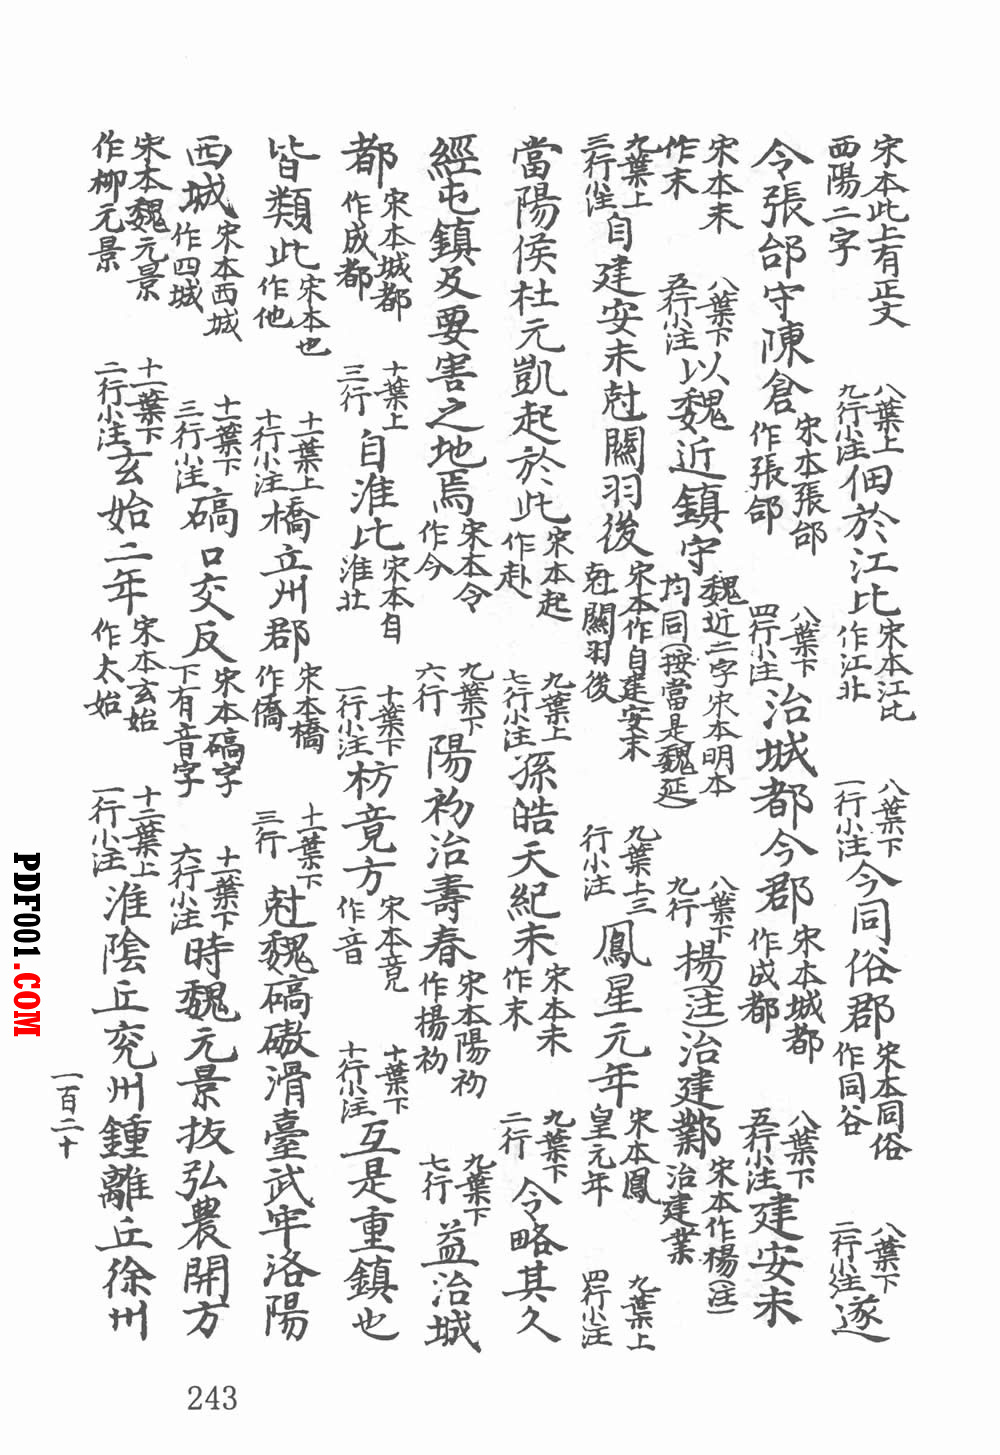 宋本此上有正文西陽二字 八葉上九行小注佃於江比宋本江比作江北 八葉下一行小注今同俗郡宋本同俗作同谷 八葉下二行小注遂
令張郃守陳倉宋本張郃作張郃 八葉下四行小注治城都今郡宋本城都作成都 八葉下五行小注建安末
宋本末作末 八葉下五行小注以魏近鎮守魏近二字宋本明本均同(按當是魏延) 八葉下九行楊(注)治建鄴宋本作楊(注)治建業
九葉上三行小注自建安未尅關羽後宋本作自建安末尅關羽後 九葉上三行小注鳳星元年宋本鳳皇元年 九葉上四行小注
當陽侯杜元凱起於此宋本起作赴 九葉上七行小注孫皓天紀未宋本未作末 九葉下二行令略其久
經屯鎮及要害之地焉宋本令作今 九葉下六行陽初治壽春宋本陽初作揚初 九葉下七行益治城
都宋本城都作成都 十葉上三行自淮比宋本自淮北 十葉下一行小注枋竟方宋本竟作音 十葉下十行小注互是重鎮也
皆類此宋本也作他 十一葉上十行小注橋立州郡宋本橋作僑 十一葉下三行尅魏碻磝滑臺武牢洛陽
西城宋本西城作四城 十一葉下三行小注碻口交反宋本碻字下有音字 十一葉下六行小注時魏元景拔弘農開方
宋本魏元景作柳元景 十一葉下二行小注玄始二年宋本玄始作太始 十二葉上一行小注淮陰丘兖州鍾離丘徐州
一百二十
243
PDF001.COM